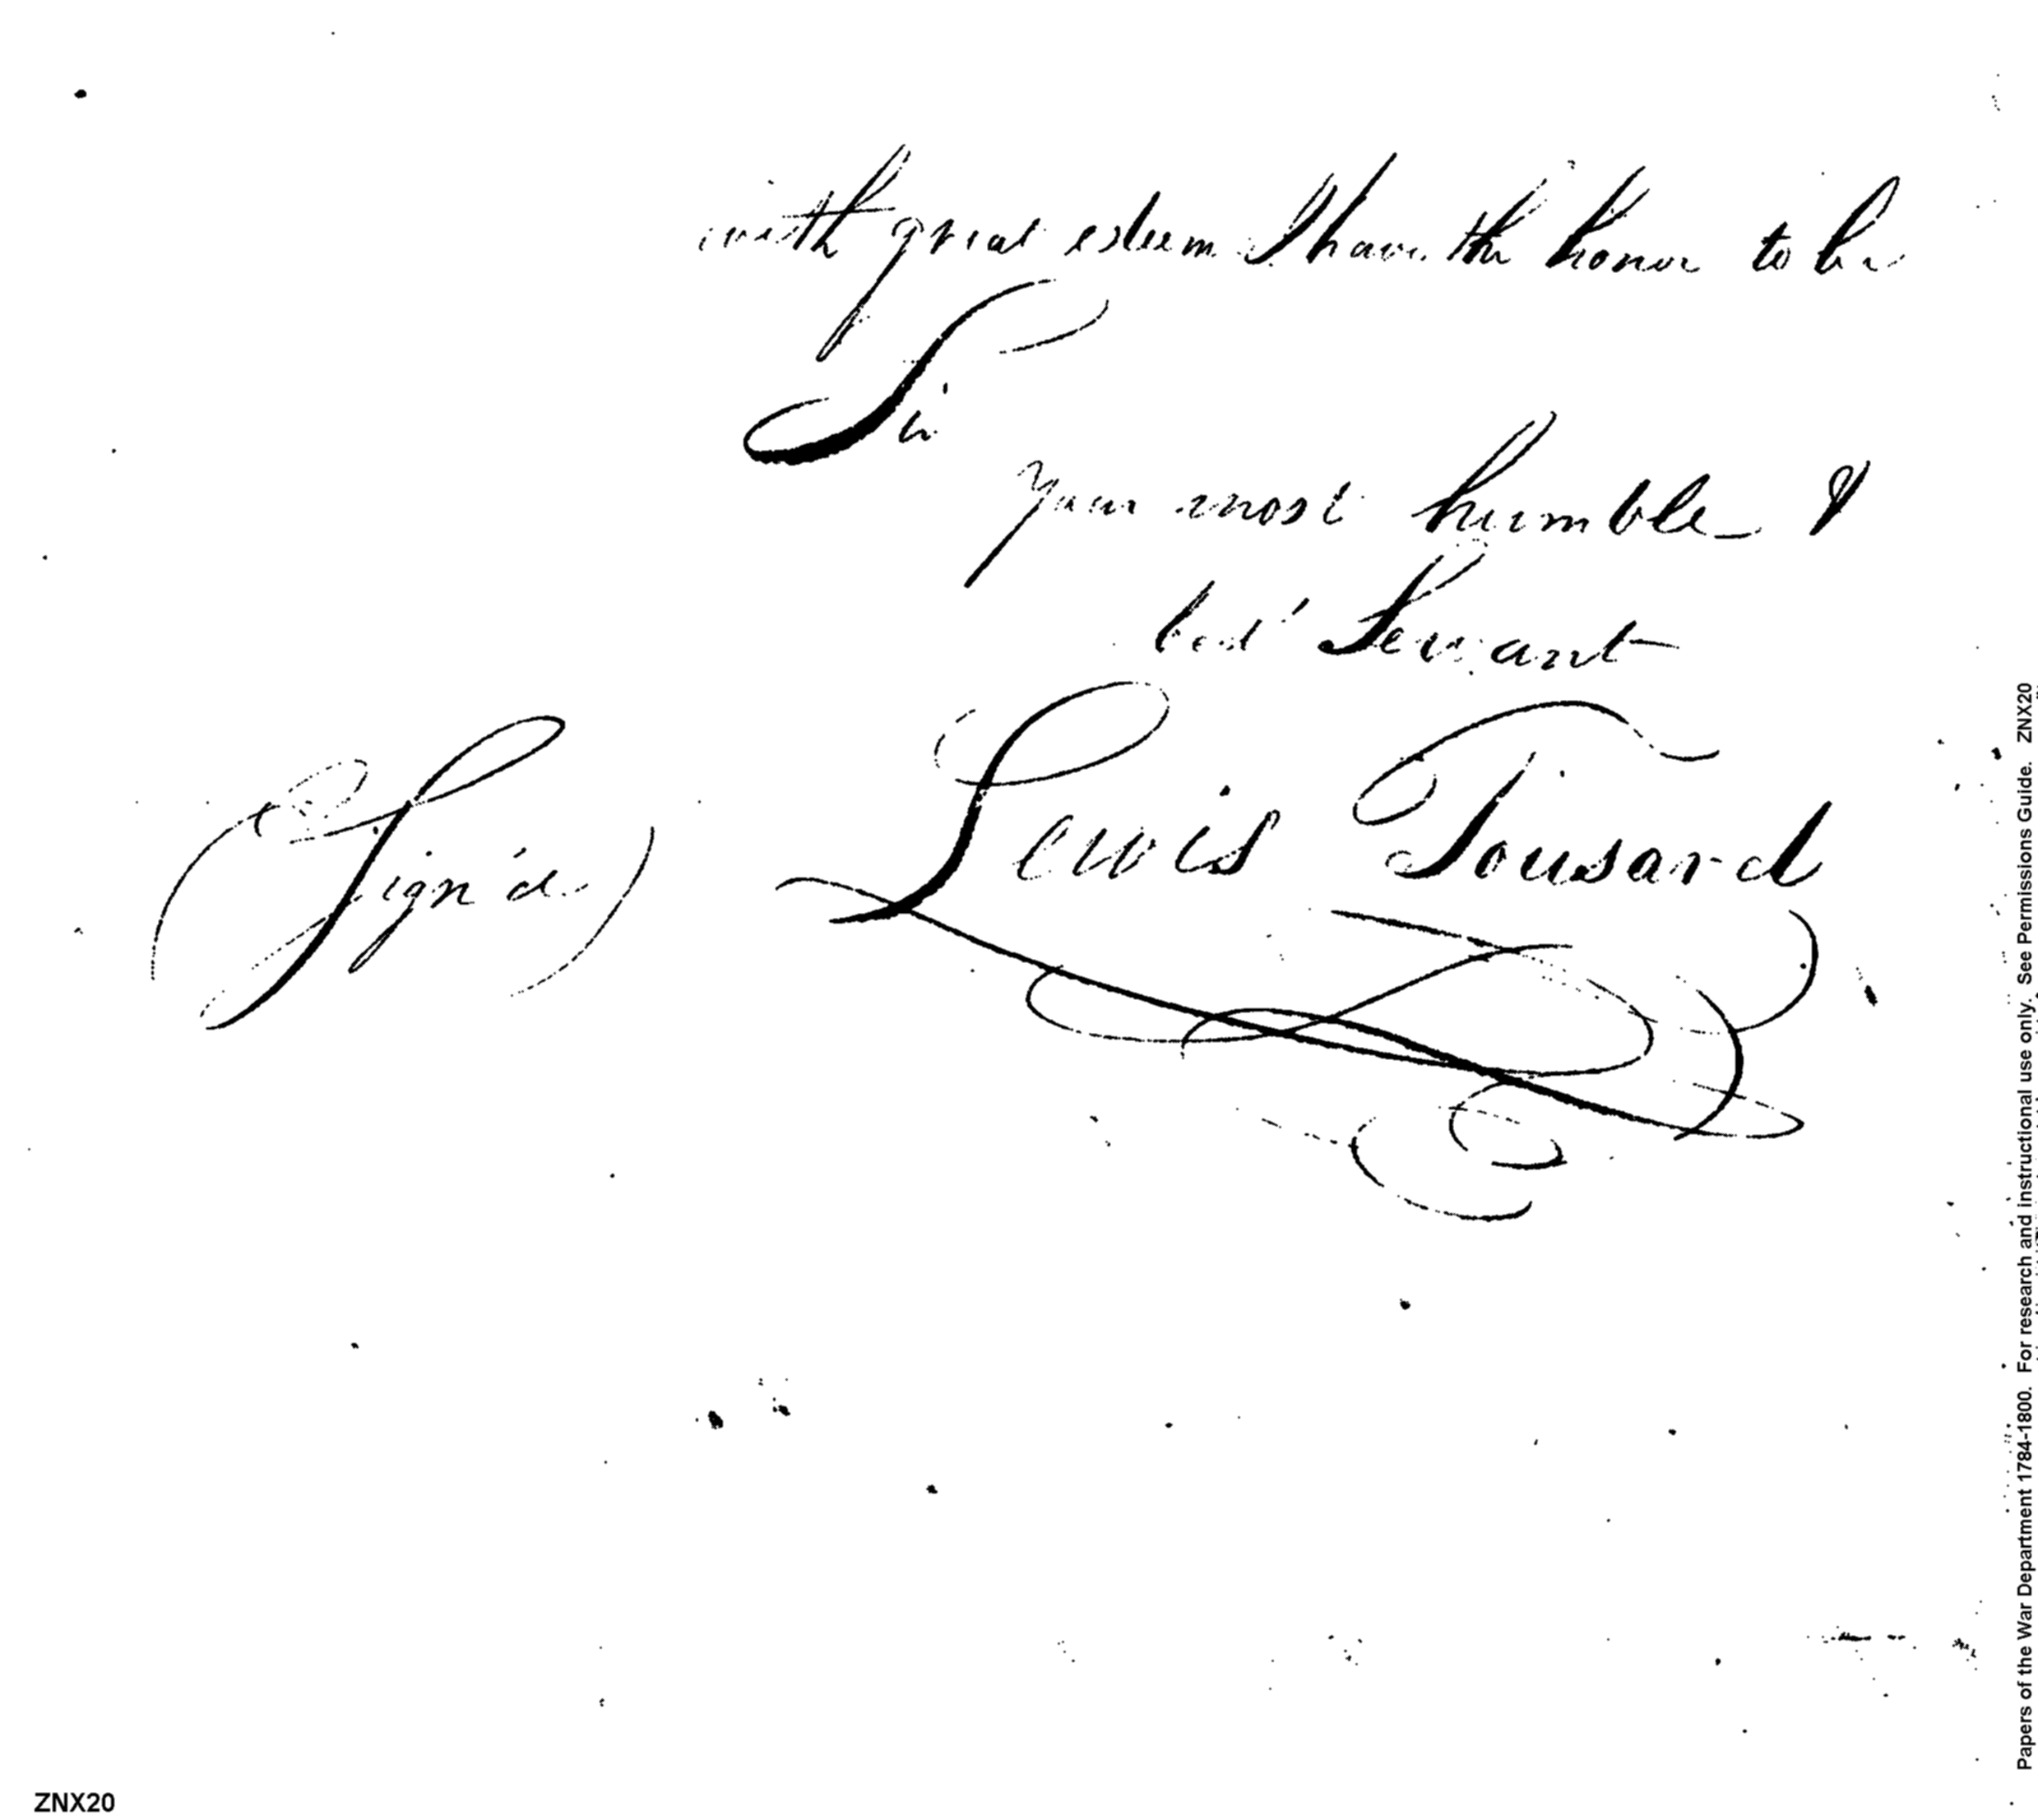 with great esteem I have the honor to be
Sir
Your most humble &
bed.t Servant
(Sign'd) Lewis Tousard
Papers of the War Department 1784-1800. For research and instructional use only. See Permissions Guide. ZNX20
ZNX20